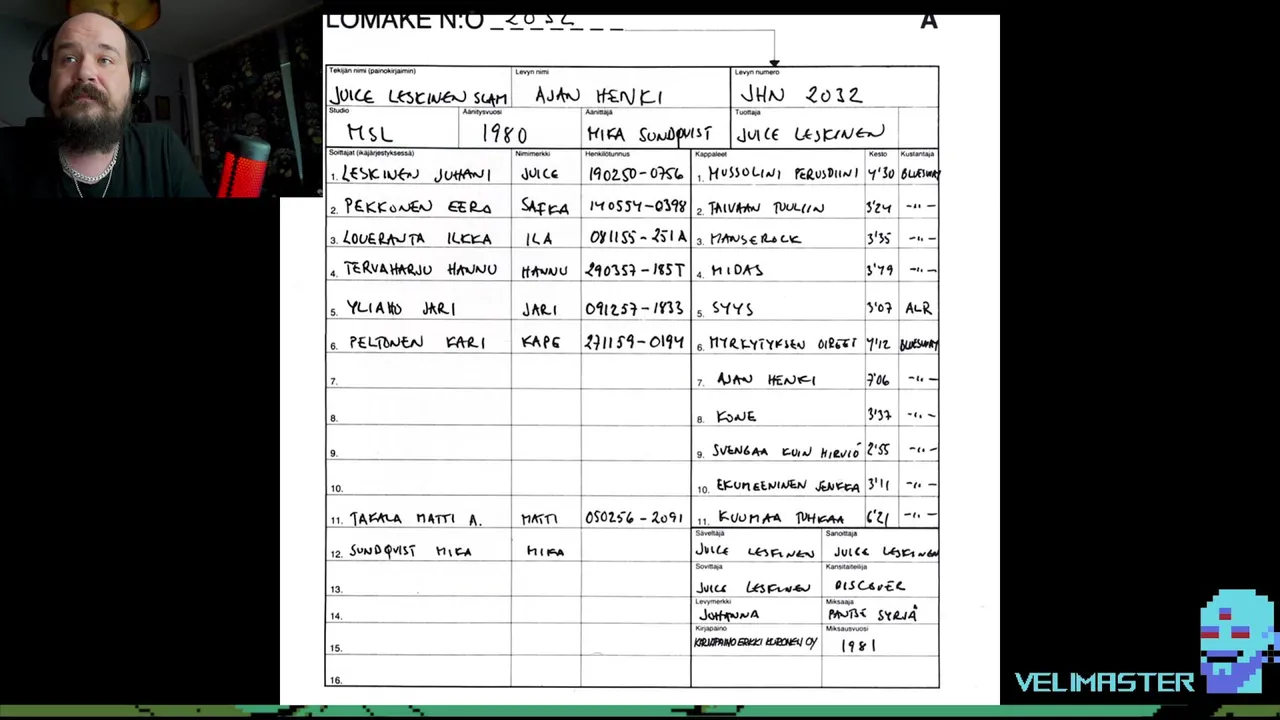 LOMAKE N:O 2032 A
Tekijän nimi (painokirjaimin) Levyn nimi Levyn numero
JUICE LESKINEN SLAM AJAN HENKI JHN 2032
Studio Äänitysvuosi Äänittäjä Tuottaja
MSL 1980 MIKA SUNDQVIST JUICE LESKINEN
Soittajat (ikäjärjestyksessä) Nimimerkki Henkilötunnus Kappaleet Kesto Kustantaja
1. LESKINEN JUHANI JUICE 190250-0756 1. MUSSOLINI PERUSDIINI 4'30 BLUESWAY
2. PEKKONEN EERO SAFKA 140554-0398 2. TAIVAAN TUULIIN 3'24 -"-
3. LOUERANTA ILKKA ILA 081155-251A 3. MANSEROCK 3'35 -"-
4. TERVAHARJU HANNU HANNU 290357-185T 4. MIDAS 3'49 -"-
5. YLIAHO JARI JARI 091257-1833 5. SYYS 3'07 ALR
6. PELTONEN KARI KAPE 271159-0194 6. MYRKYTYKSEN OIREET 4'12 BLUESWAY
7. 7. AJAN HENKI 7'06 -"-
8. 8. KONE 3'37 -"-
9. 9. SVENGAA KUIN HIRVIÖ 2'55 -"-
10. 10. EKUMEENINEN JENKKA 3'11 -"-
11. TAKALA MATTI A. MATTI 050256-2091 11. KUUMAA TUHKAA 6'21 -"-
Säveltäjä Sanoittaja
12. SUNDQVIST MIKA MIKA JUICE LESKINEN JUICE LESKINEN
Sovittaja Kansitaiteilija
13. JUICE LESKINEN DISCOVER
Levymerkki Miksaaja
14. JOHANNA PANTSE SYRJÄ
Kirjapaino Miksausvuosi
15. KIRJAPAINO ERKKI KURONEN OY 1981
16.
VELIMASTER